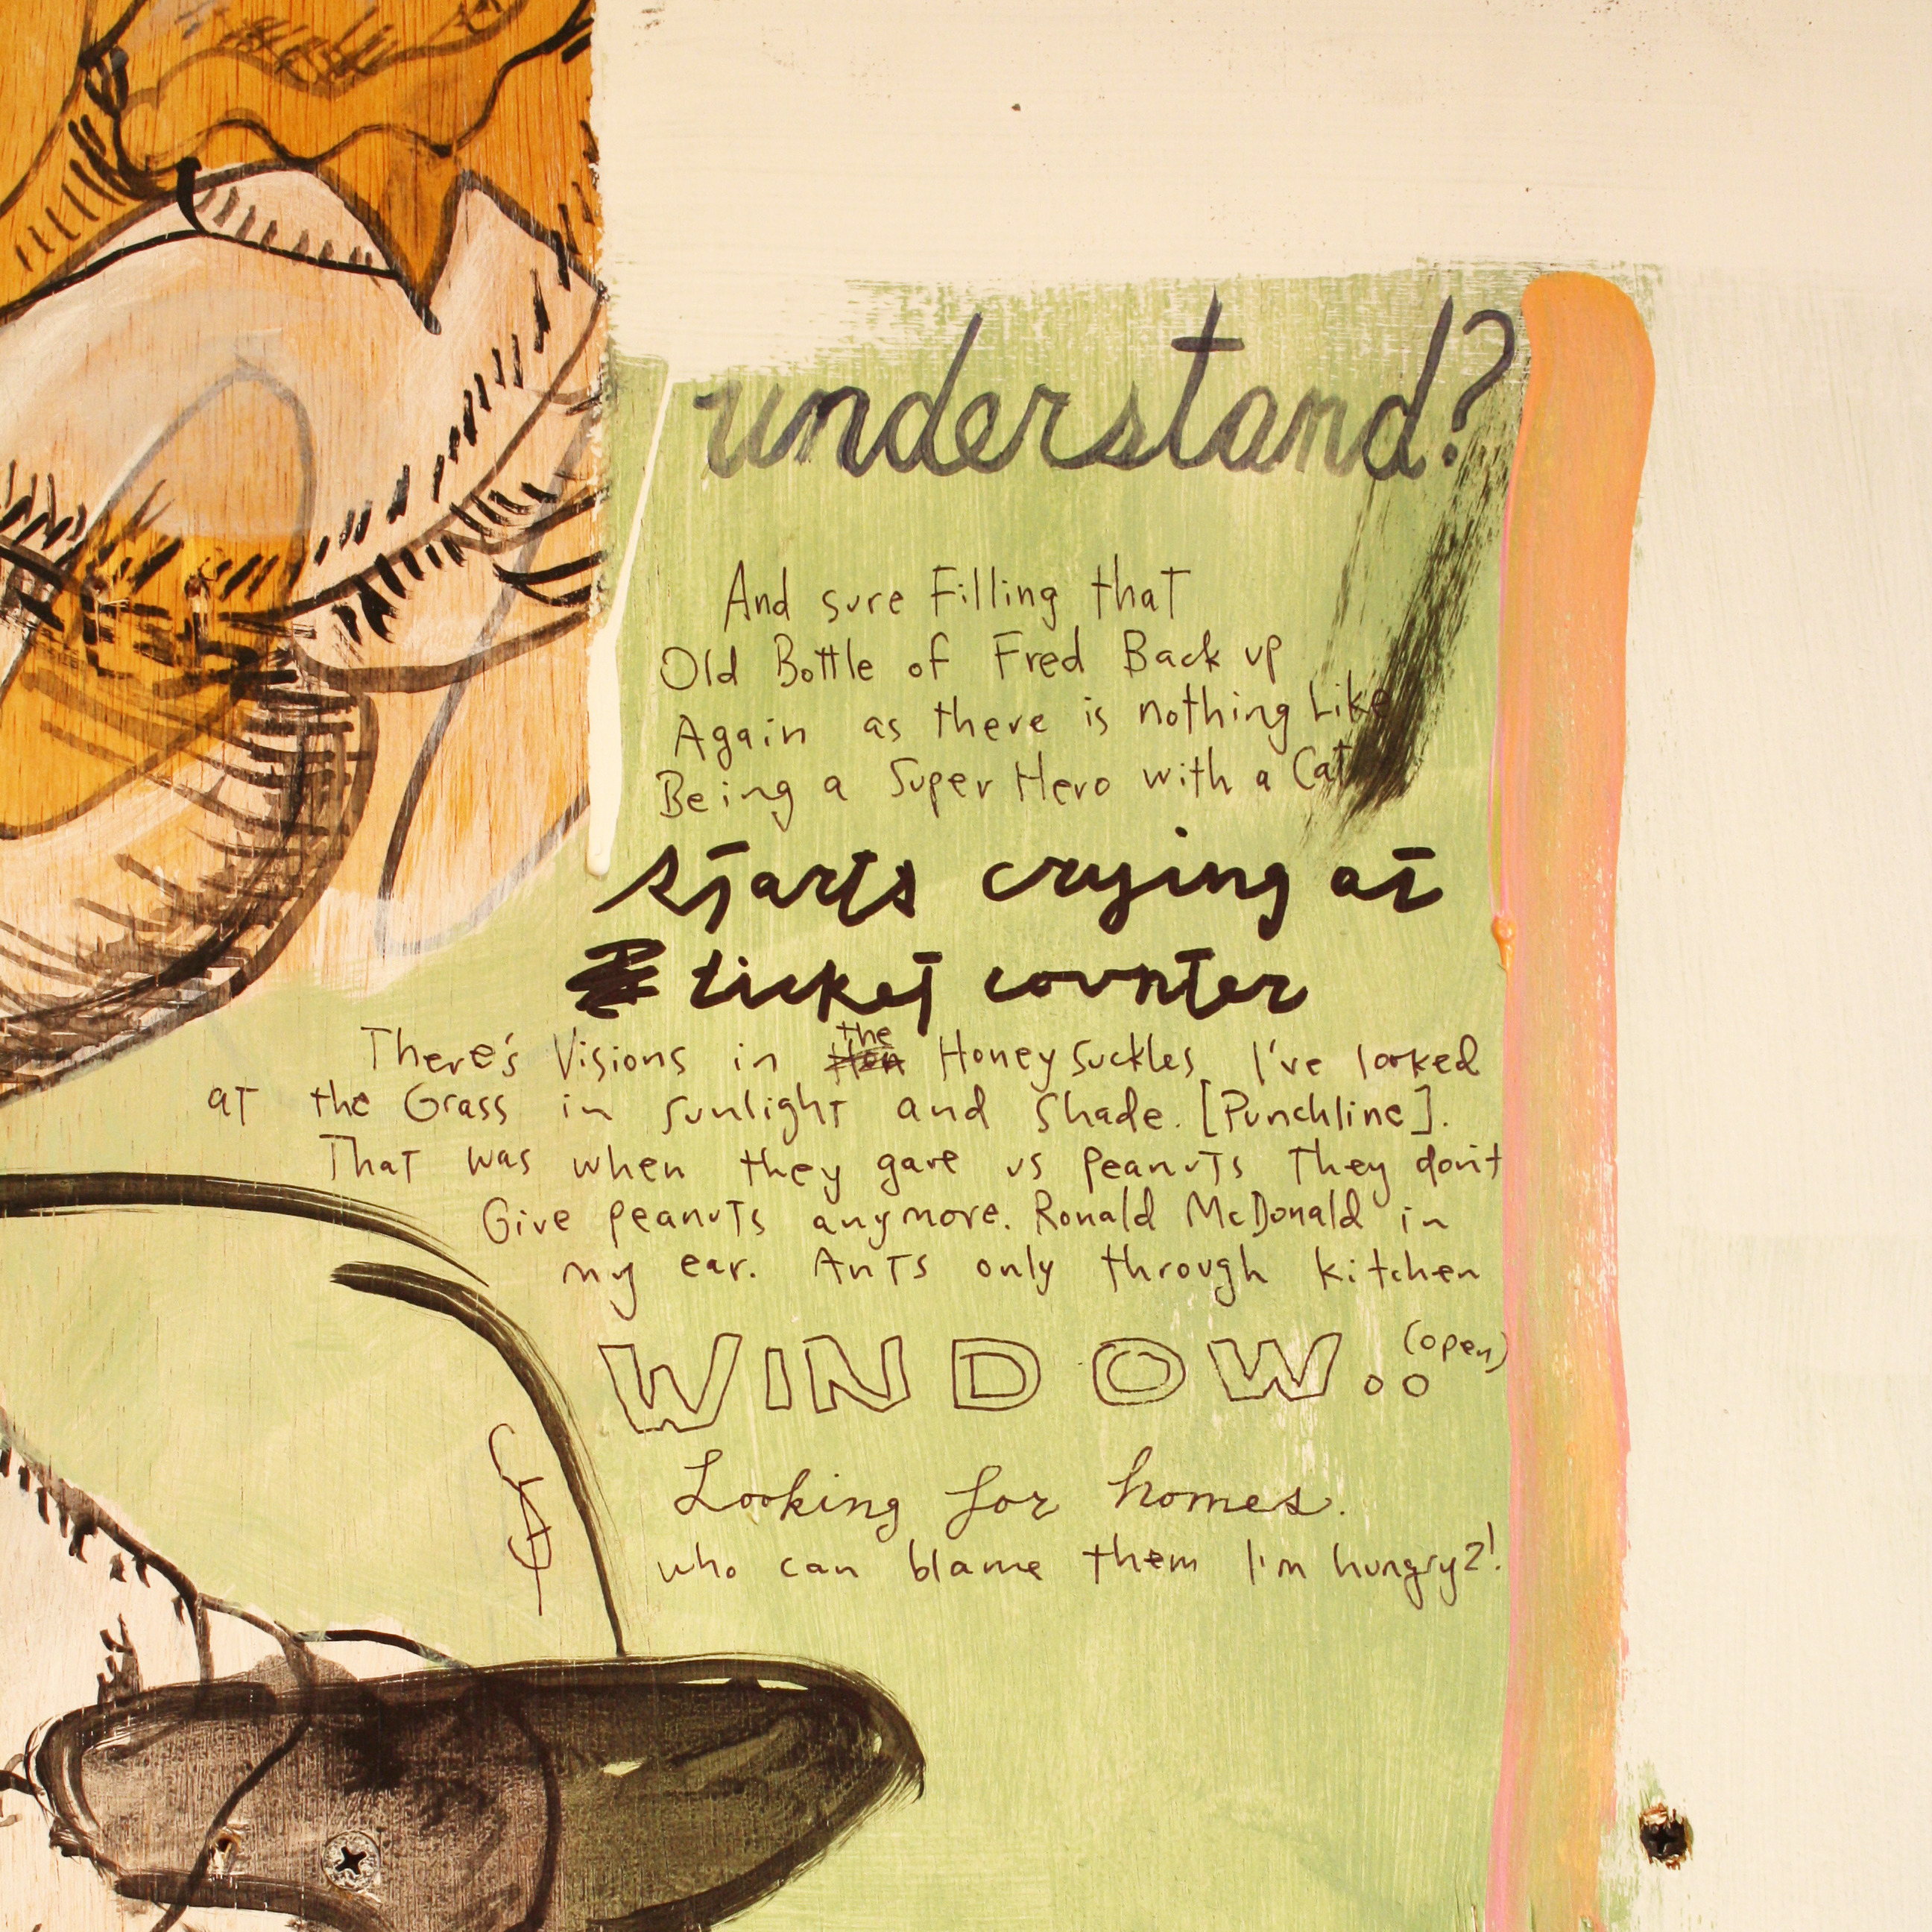 understand?
And sure Filling that
Old Bottle of Fred Back up
Again as there is nothing Like
Being a Super Hero with a Cat
starts crying at
ticket counter
There's Visions in the Honey Suckles I've looked
at the Grass in sunlight and Shade. [Punchline].
That was when they gave us peanuts They don't
Give peanuts anymore. Ronald McDonald in
my ear. Ants only through kitchen
WINDOW.. (open)
Looking for homes.
who can blame them I'm hungry?!